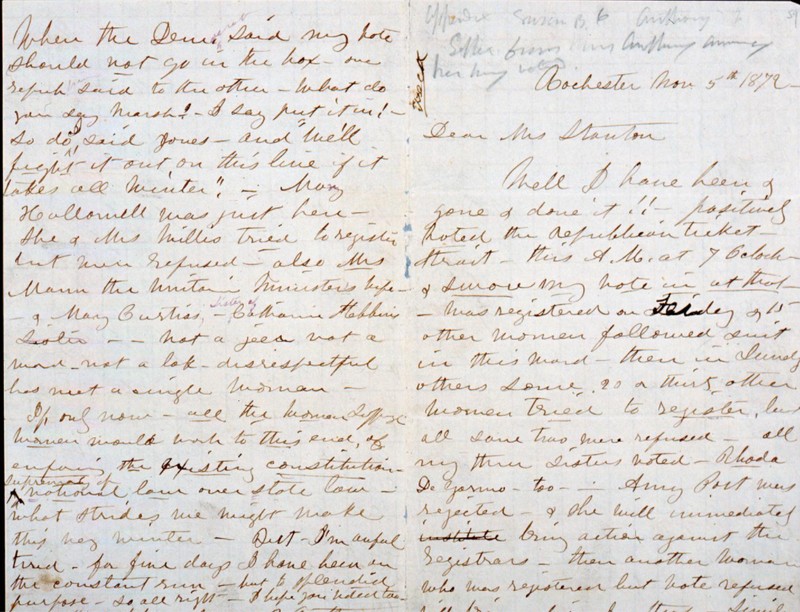 When the Dem. said my vote
should not go in the box - one
repub said to the other - What do
you say Marsh? - I say put it in! -
So do I, said Jones - and "we'll
fight it out on this line if it
takes all winter". - Mary
Hallowell was just here -
She & Mrs Willis tried to register
but were refused - also Mrs
Mann the Unitarian Ministers wife -
- & Mary Curtiss, - Sister of Catharine Stebbins
Sister - - not a jeer not a
word - not a look - disrespectful
has met a single woman -
If only now - all the Woman Suffrage
Women would work to this end, of
enforcing the existing constitution -
supremacy of
national law over state law -
what strides we might make
this very winter - But - I'm awful
tired - for five days I have been on
the constant run - but to splendid
purpose - So all right - I hope you voted too
Susan B. Anthony
Letter from Miss Anthony announcing
her having voted
Rochester Nov 5th 1872 -
Dear Mrs Stanton
Well I have been &
gone & done it!! - positively
voted the Republican ticket -
strait - this A.M. at 7 Oclock -
& swore my vote in at that -
- was registered on Friday & 15
other women followed suit
in this ward - then in Sunday
others some 20 or thirty other
women tried to register, but
all save two were refused - all
my three sisters voted - Rhoda
De Garmo too - Amy Post was
rejected - & she will immediately
institute bring action against the
registrars - then another woman
who was registered but vote refused